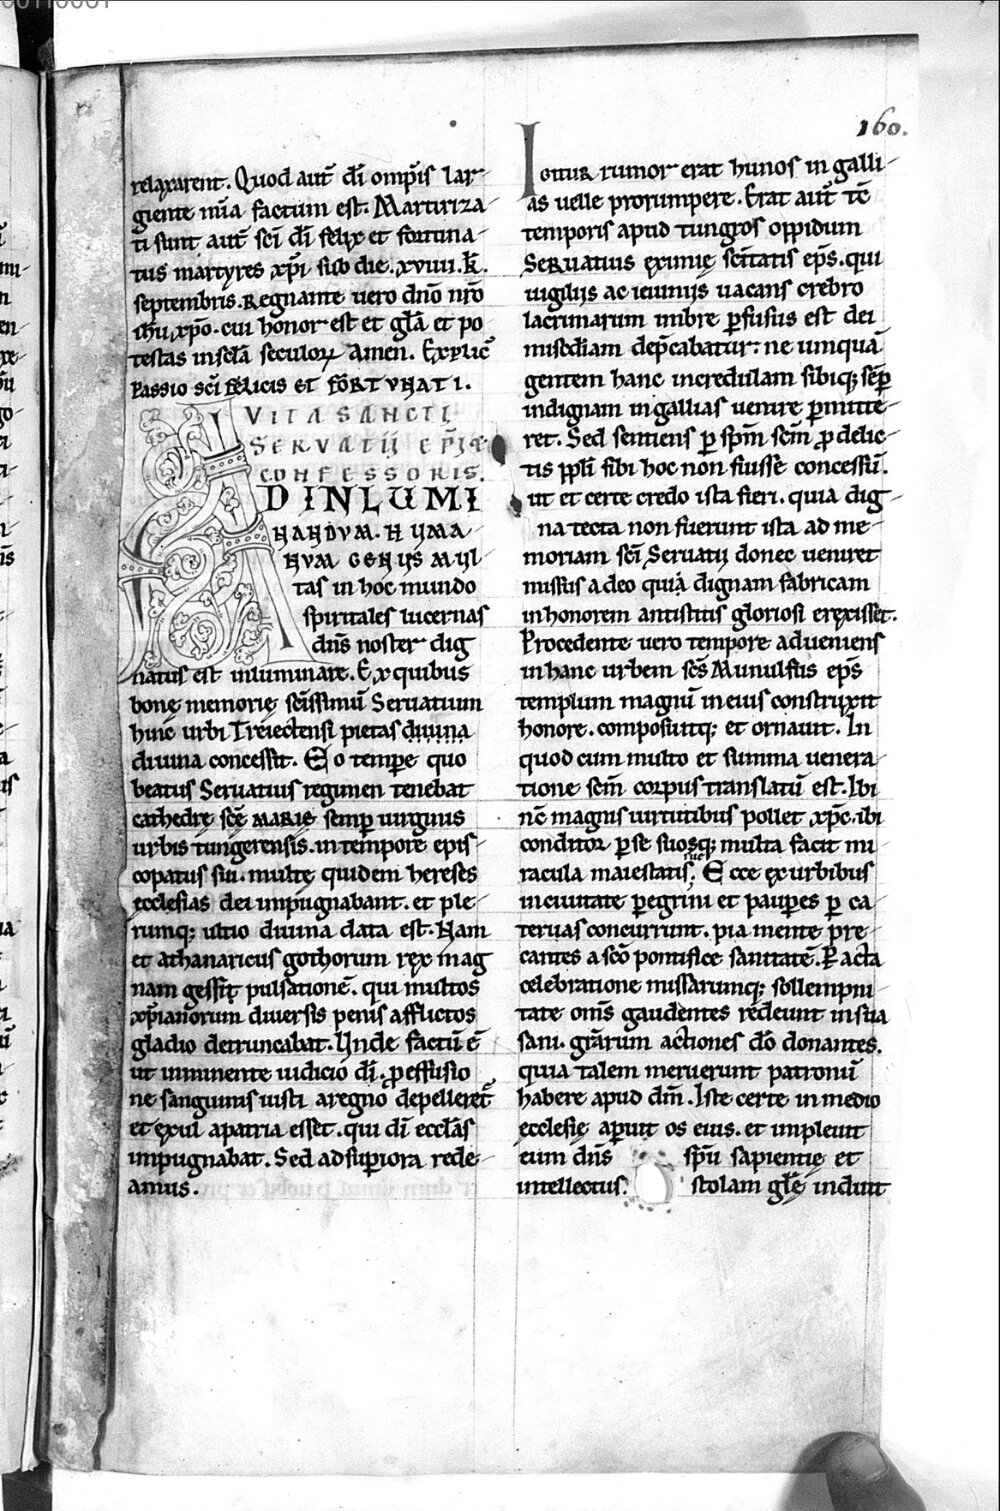 160.
relaxarent. Quod aut̄ dī omp̄is lar
giente mīa factum est. Martiriza
ti sunt aut̄ sc̄i dī felix et fortuna
tus martyres xp̄i sub die. xviiii. k̄.
septembris. Regnante uero dn̄o nr̄o
ihū xp̄o. cui honor est et gl̄a et po
testas in sc̄la seculoꝝ Amen. Explic̄
Passio sc̄i felicis et fortunati.
VITA SANCTI
SERVATII EP̄I &
CONFESSORIS.
AD INLUMI
NANDVM. HUMA
NVM GENUS MUL
tas in hoc mundo
spiritales lucernas
dn̄s noster dig
natus est inluminare. Ex quibus
bonę memorię sc̄issimū Seruatium
huic urbi Treiectensi pietas diuina
diuina concessit. Eo tempe quo
beatus Seruatius regimen tenebat
cathedrę sc̄ę MARIę semp uirginis
urbis tungerensis. in tempore epis
copatus sui. multę quidem hereses
ecclesias dei inpugnabant. et ple
rumq; ultio diuina data est. Nam
et athanaricus gothorum rex mag
nam gessit pulsationē. qui multos
xp̄ianorum diuersis penis afflictos
gladio detruncabat. Unde factū ē
ut imminente iudicio dī. ꝓ effusio
ne sanguinis iusti a regno depelleret̄
et exul a patria esset. qui dī eccl̄as
impugnabat. Sed ad supiora rede
amus.
Igitur rumor erat hunos in galli
as uelle prorumpere. Erat aut̄ tc̄
temporis apud tungros oppidum
Seruatius eximię sc̄itatis ep̄s. qui
uigiliis ac ieiuniis uacans crebro
lacrimarum imbre ꝑfusus est dei
misc̄diam dep̄cabatur. ne umquā
gentem hanc incredulam sibiq; sēp
indignam in gallias uenire ꝑmitte
ret. Sed sentiens ꝑ sp̄m sc̄m ꝓ delic
tis pp̄li sibi hoc non fuisse concessū.
ut et certe credo ista fieri. quia dig
na tecta non fuerunt ista ad me
moriam sc̄i Seruatii donec ueniret
missus a deo quia dignam fabricam
in honorem antistitis gloriosi erexisset.
Procedente uero tempore adueniens
in hanc urbem sc̄s Munulfus ep̄s
templum magnū in eius construxit
honore. composuitq; et ornauit. In
quod cum multo et summa uenera
tione sc̄m corpus translatū est. Ibi
nc̄ magnis uirtutibus pollet xp̄c. ibi
conditor ꝑ se suosq; multa facit mi
racula maiestatis suę. Ecce ex urbibus
in ciuitate ꝑegrini et paupes ꝑ ca
teruas concurrunt. pia mente pre
cantes a sc̄o pontifice sanitatē. Pacta
celebratione missarumq; sollempni
tate om̄s gaudentes redeunt in sua
sani. gr̄arum actiones dō donantes.
quia talem meruerunt patronū
habere apud dm̄. Iste certe in medio
ecclesię aperuit os eius. et impleuit
eum dn̄s sp̄u sapientię et
intellectus. stolam gl̄ę induit